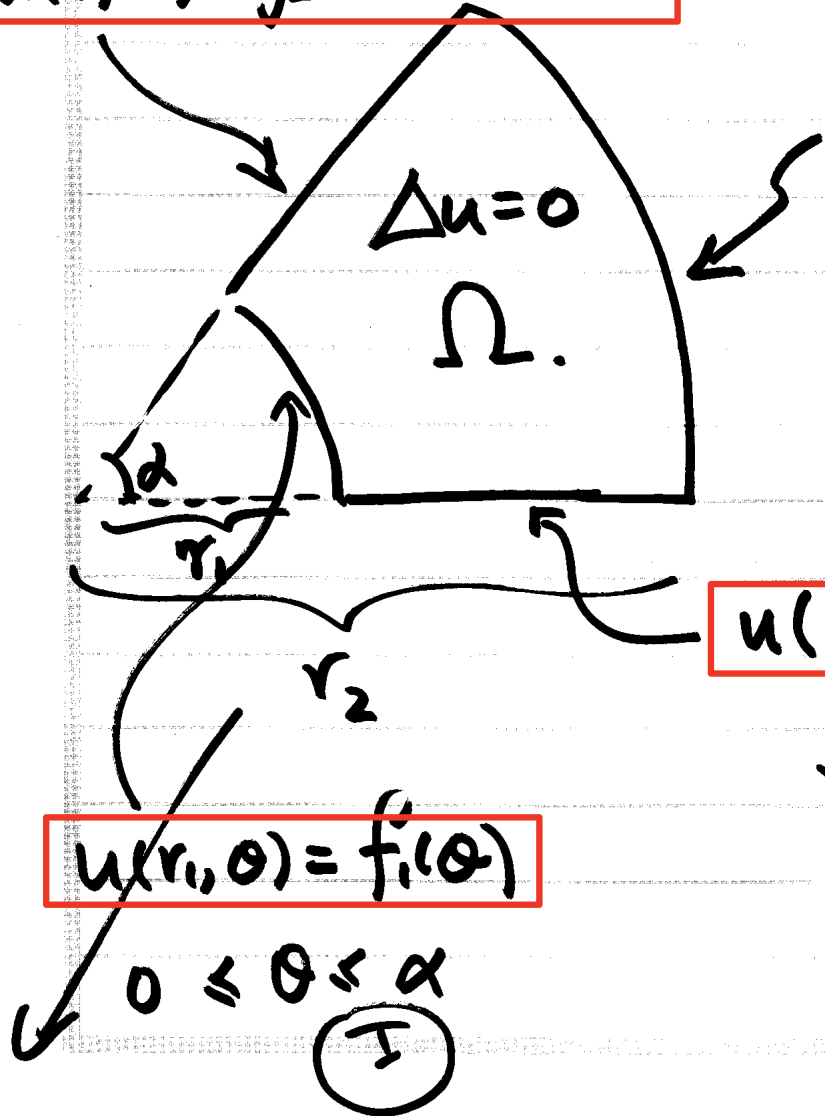 Δu=0
Ω.
α
r₁
r₂
u(
u(r₁,θ) = f₁(θ)
0 ≤ θ ≤ α
I